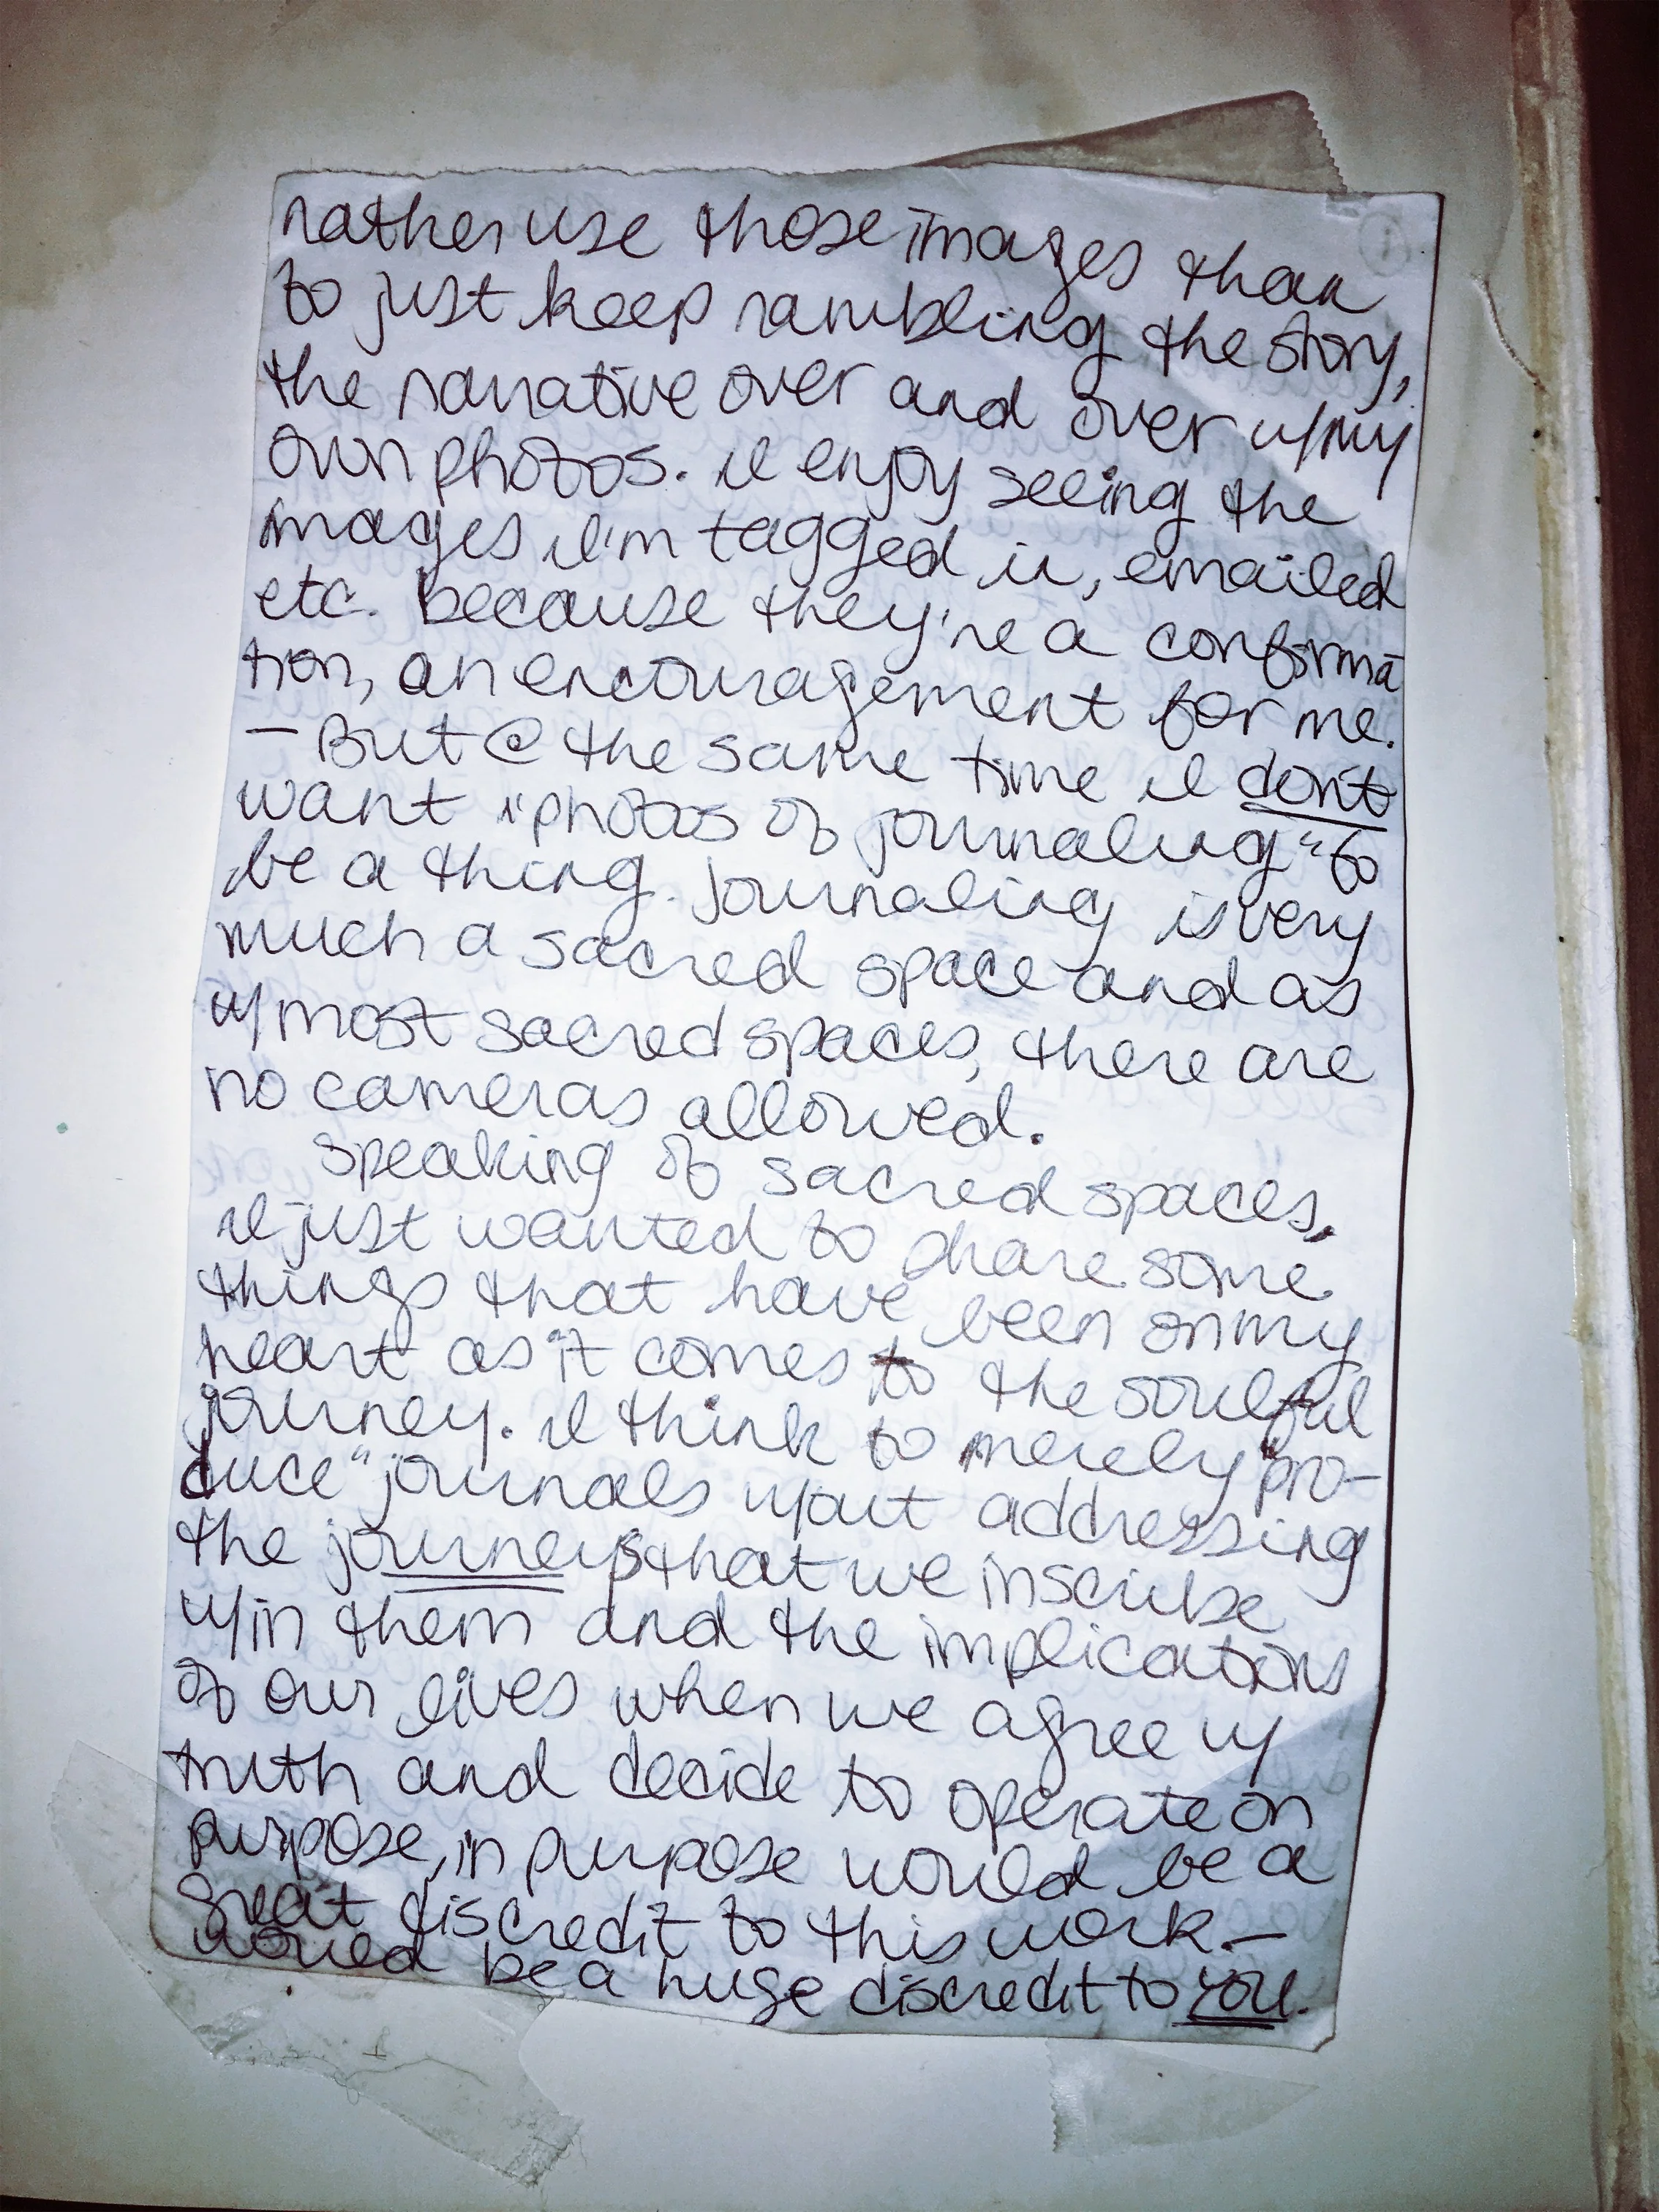 rather use those images than
to just keep rambling the story,
the narrative over and over w/my
own photos. I enjoy seeing the
images I'm tagged in, emailed
etc. because they're a confirma
tion, an encouragement for me.
— But @ the same time I don't
want "photos of journaling" to
be a thing. Journaling is very
much a sacred space and as
w/most sacred spaces, there are
no cameras allowed.
Speaking of sacred spaces,
I just wanted to share some
things that have been on my
heart as it comes to the soulful
journey. I think to merely "pro-
duce" journals w/out addressing
the journeys that we inscribe
w/in them and the implications
of our lives when we agree w/
truth and decide to operate on
purpose, in purpose would be a
great discredit to this work —
would be a huge discredit to you.